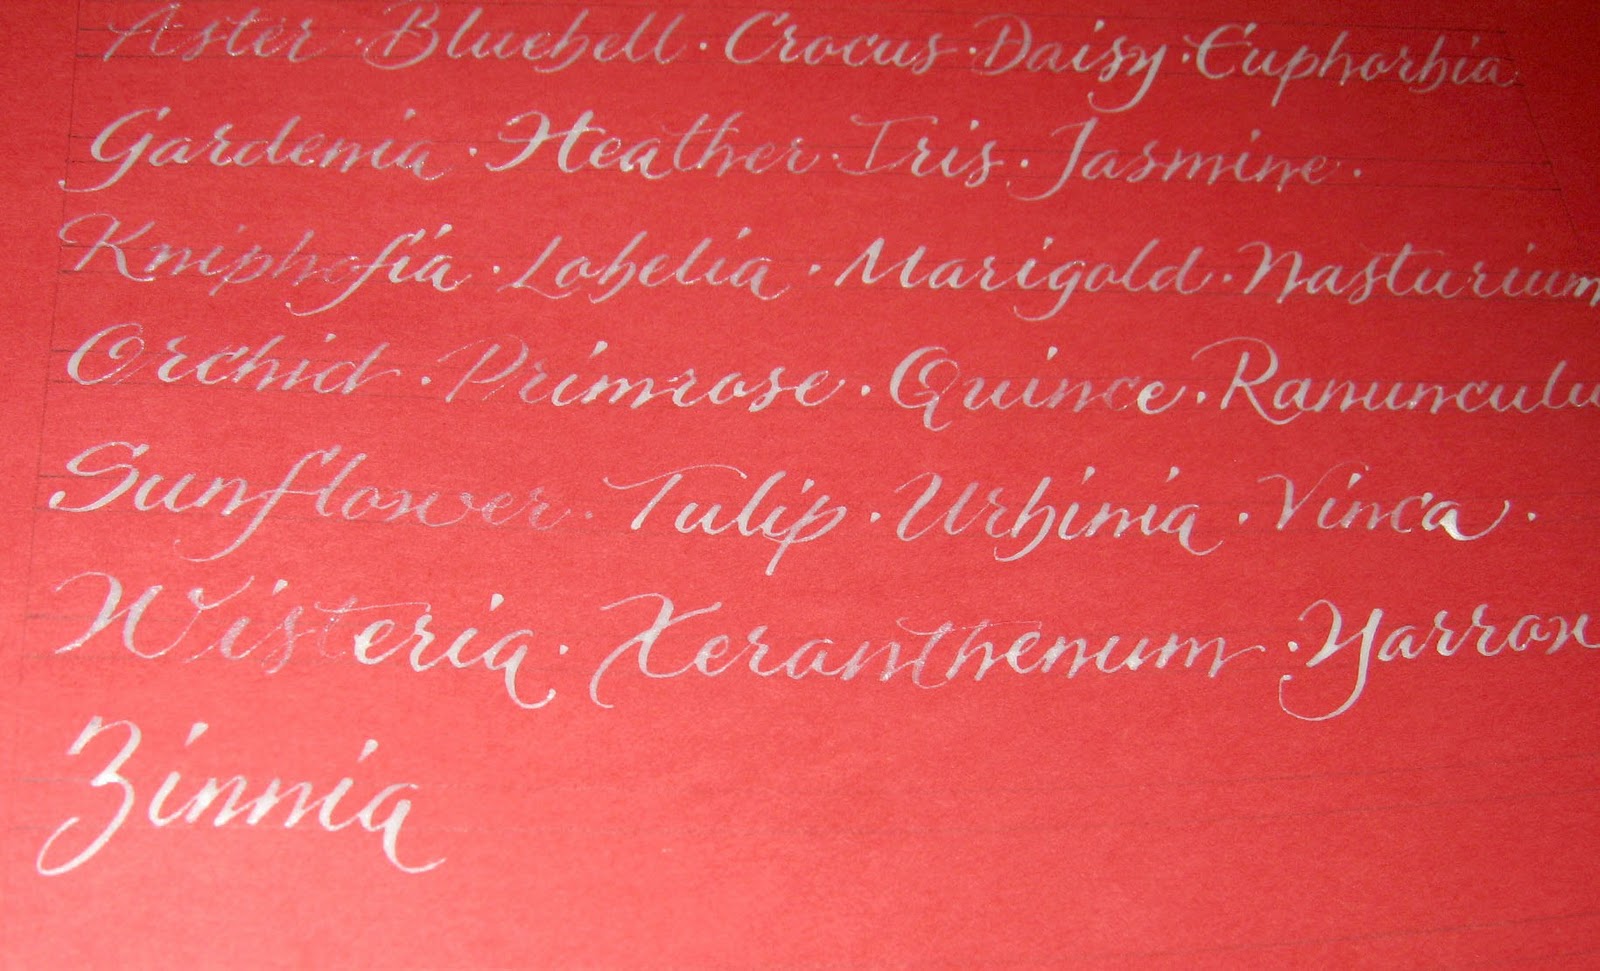 Aster · Bluebell · Crocus · Daisy · Euphorbia
Gardenia · Heather · Iris · Jasmine ·
Kniphofia · Lobelia · Marigold · Nasturium
Orchid · Primrose · Quince · Ranunculu
Sunflower · Tulip · Urbinia · Vinca ·
Wisteria · Xeranthenum · Yarrow
Zinnia